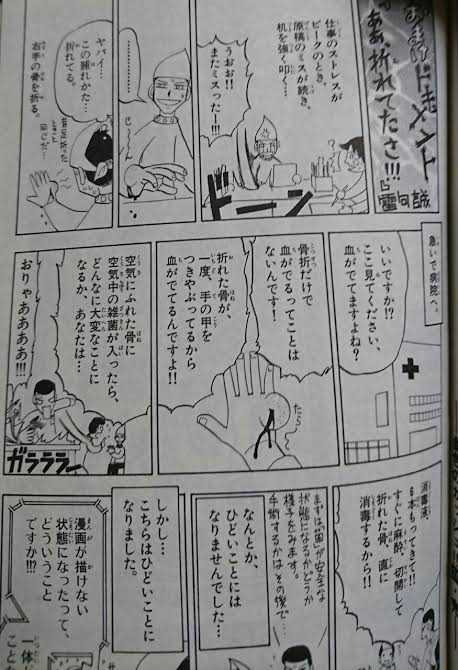 おまけドキュメント
ああ、折れてたさ!!!
雷句誠
仕事のストレスが
ピークのとき、
原稿のミスが続き、
机を強く叩く…
うおお!!
またミスったー!!!
ドーン
…………
じ〜ん
ヤバイ…
この腫れかた…
折れてる。
右手の骨を折る。
急いで病院へ。
いいですか!?
ここ見てください、
血がでてますよね?
骨折だけで
血がでるってことは
ないんです!
折れた骨が、
一度、手の甲を
つきやぶってるから
血がでてるんですよ!!
空気にふれた骨に
空気中の雑菌が入ったら、
どんなに大変なことに
なるか、あなたは…
おりゃああああ!!!
ガラララ
消毒液、
6本もってきて!!
すぐに麻酔、切開して
折れた骨、直に
消毒するから!!
まずは菌が安全な
状態になるかどうか
様子をみます。
手術するかはその後で…
なんとか、
ひどいことには
なりませんでした…
しかし…
こちらはひどいことに
なりました。
漫画が描けない
状態になったって、
どういうこと
ですか!!?
一体